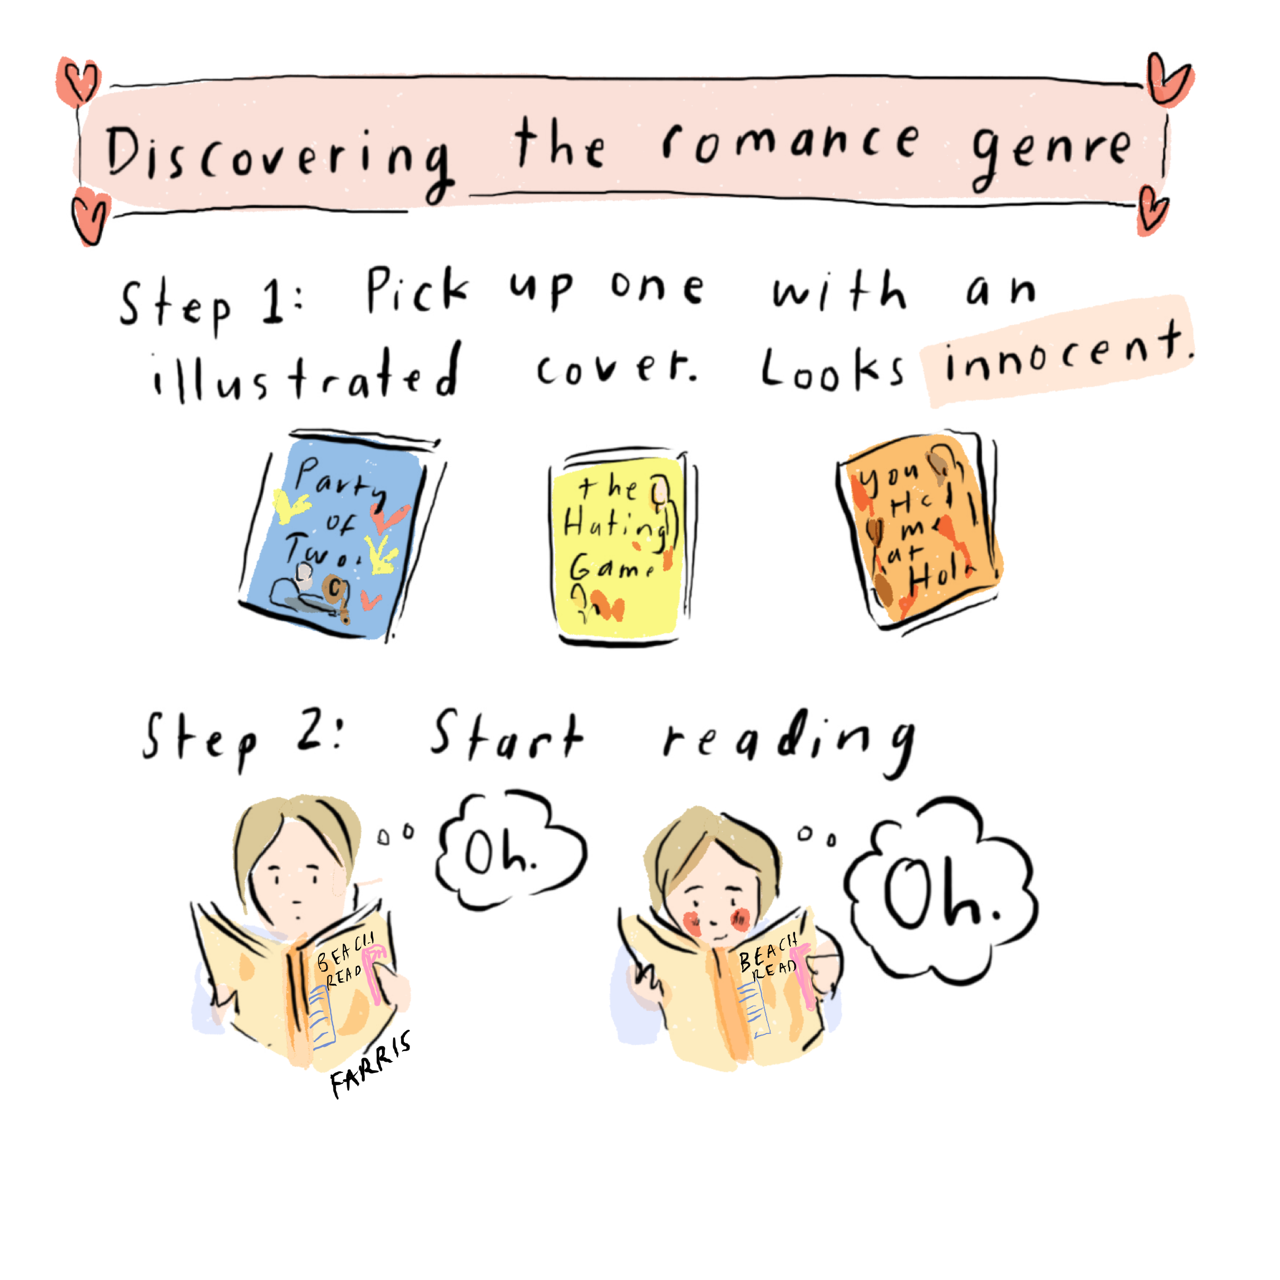 Discovering the romance genre
Step 1: Pick up one with an
illustrated cover. Looks innocent.
Party
of
Two
the
Hating
Game
you
Had
me
at
Hola
Step 2: Start reading
Oh.
Oh.
BEACH
READ
BEACH
READ
FARRIS